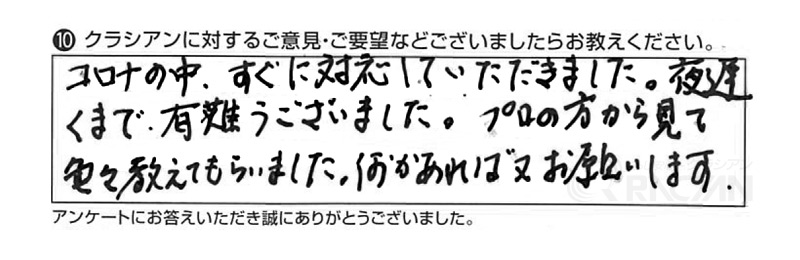 ⑩ クラシアンに対するご意見・ご要望などございましたらお教えください。
コロナの中、すぐに対応していただきました。夜遅
くまで、有難うございました。プロの方から見て
色々教えてもらいました。何かあれば又お願いします.
アンケートにお答えいただき誠にありがとうございました。